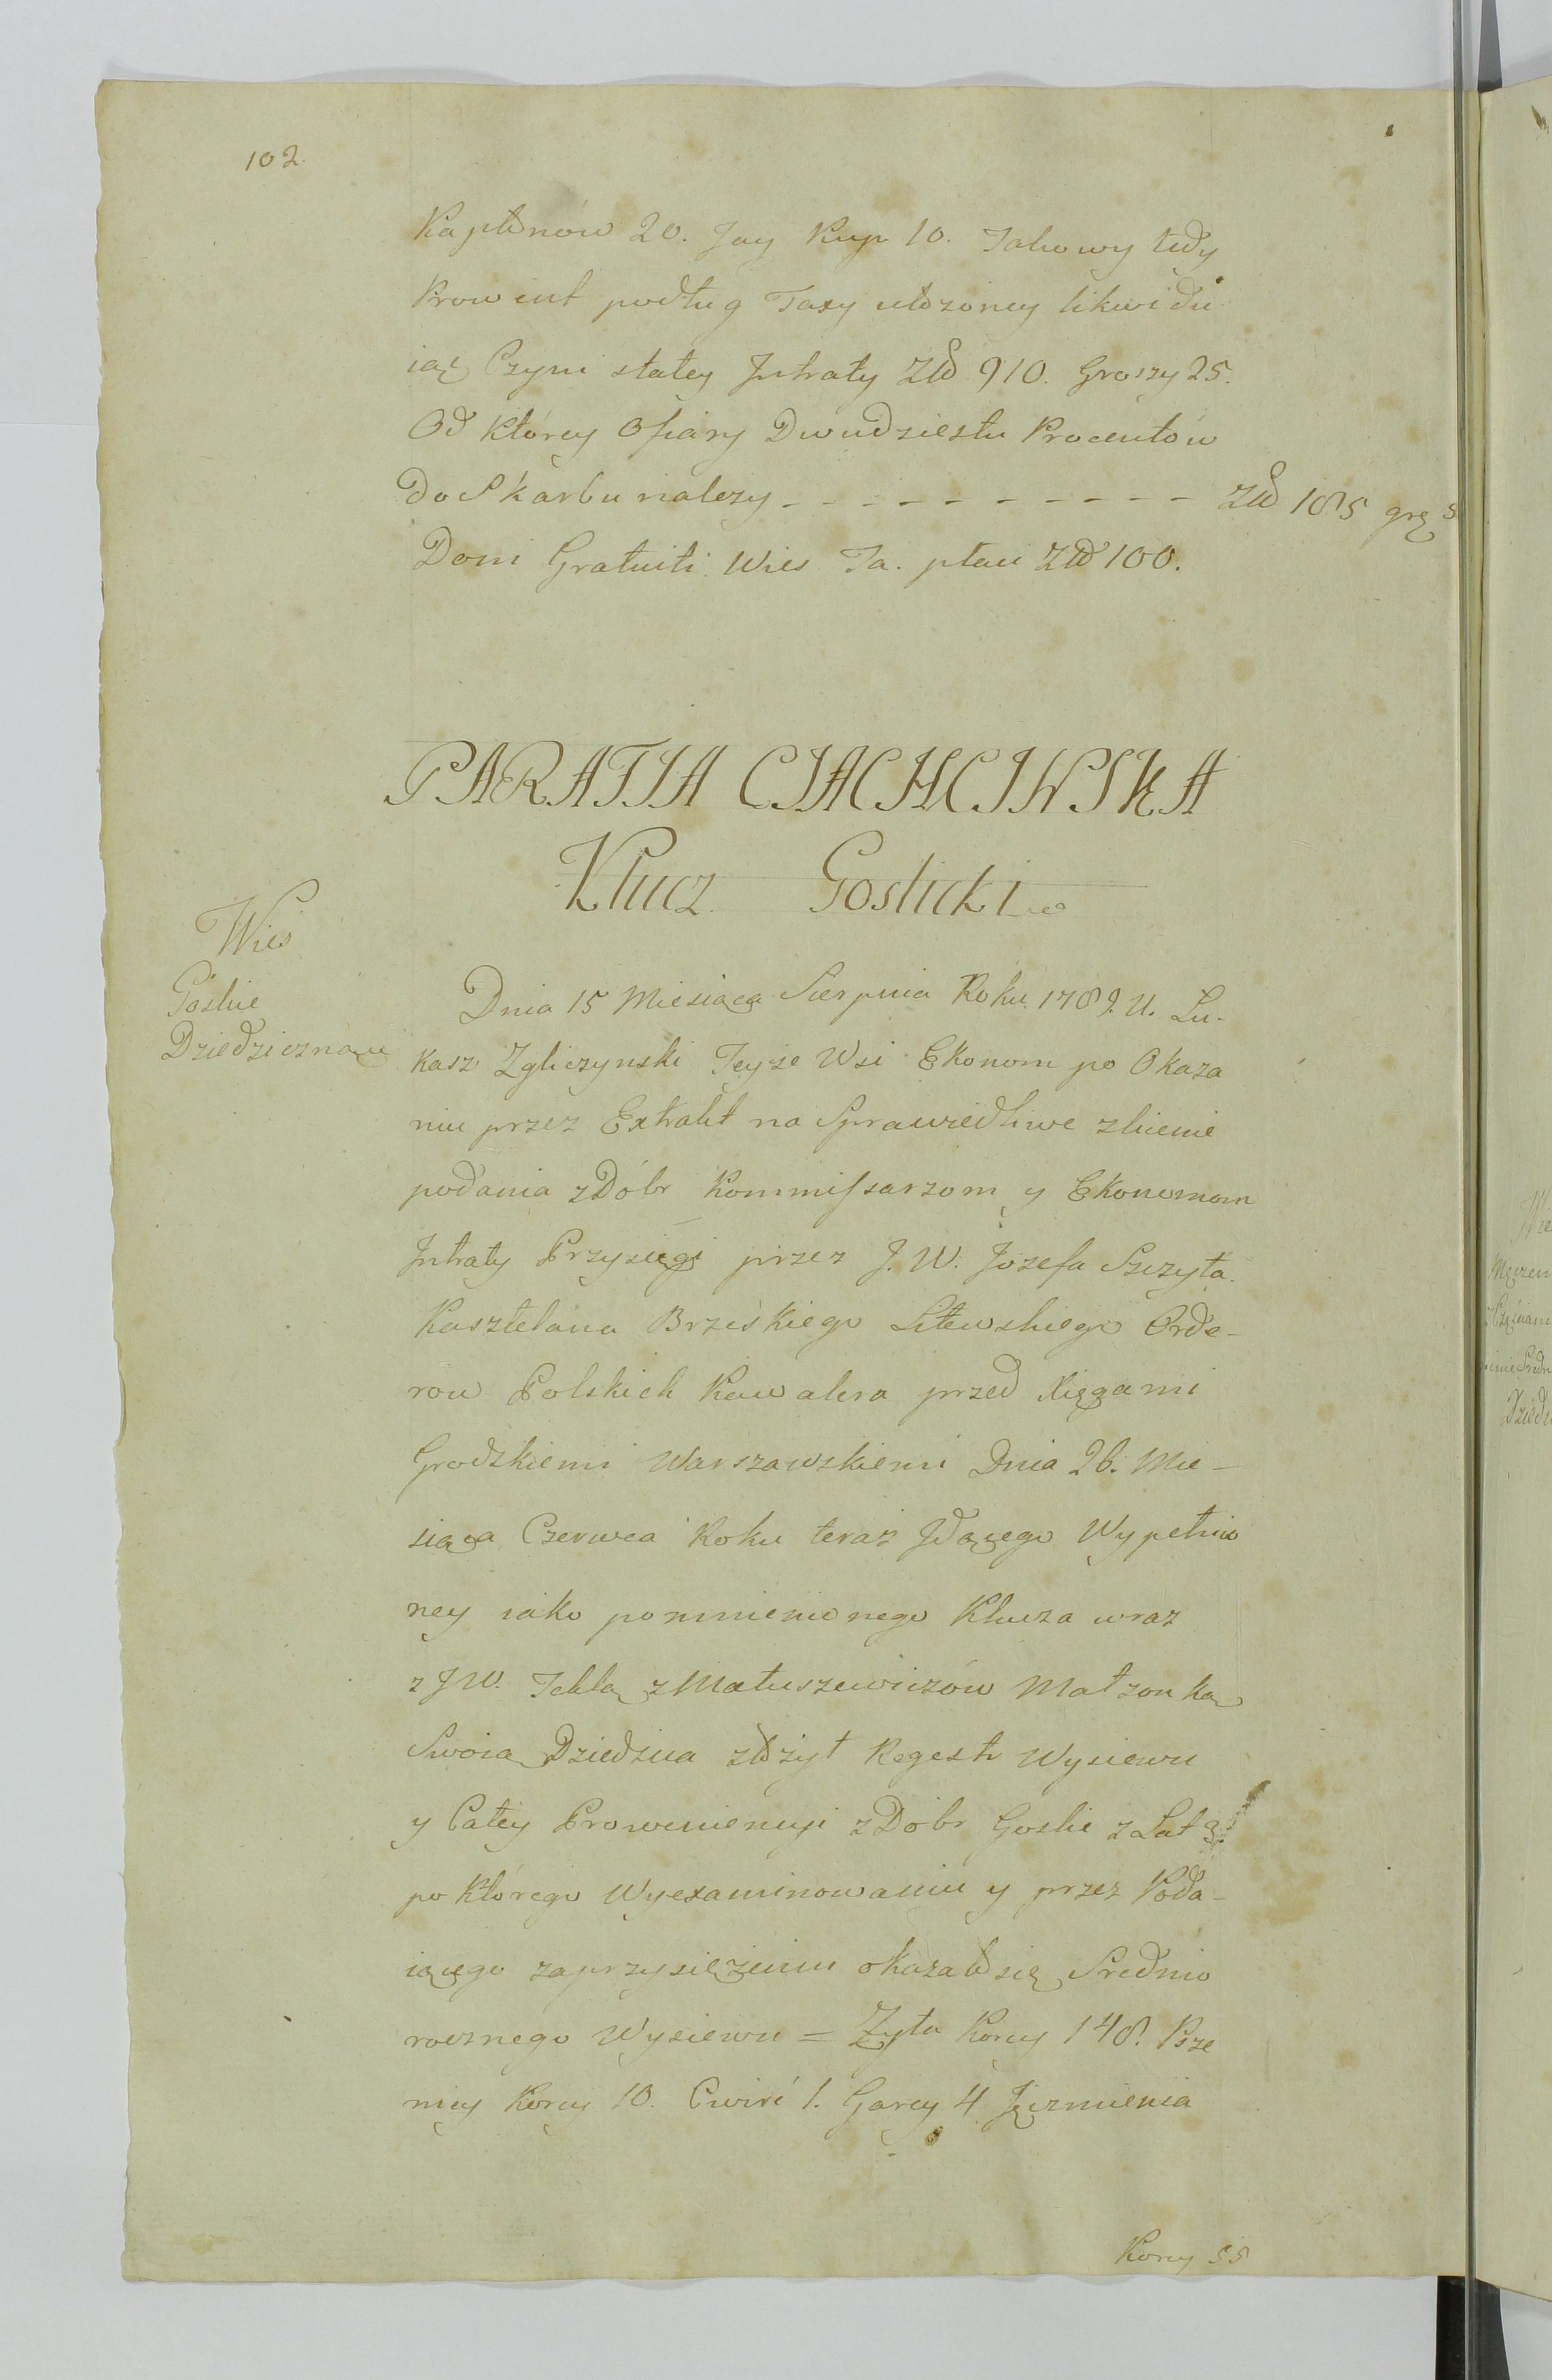 102.
Kapłonów 20. Jay Kup 10. Takowy tedy
Prowent podług Taxy ułożoney likwidu-
iąc Czyni stałey Intraty Złł 910. Groszy 25.
Od którey Ofiary Dwudziestu Procentów
do Skarbu należy - - - - - - - - - - - Złł 185 grę 5
Doni Gratuiti Wies Ta. płaci Złł 100.
PARAFIA CIACHCINSKA
Klucz Goslicki
Wies
Goslice
Dziedziczna
Dnia 15 Miesiąca Sierpnia Roku 1789. U. Lu-
kasz Zgliczynski Teyże Wsi Ekonom po Okaza
niu przez Extrakt na Sprawiedliwe
podania z Dóbr Kommissarzom y Ekonomom
Intraty Przysięgi przez J. W. Jozefa Szczyta
Kasztelana Brzeskiego Litewskiego Orde-
row Polskich Kawalera przed Xięgami
Grodzkiemi Warszawskiemi Dnia 26. Mie-
siąca Czerwca Roku teraz Idącego Wypełnio
ney iako pommienionego Klucza wraz
z JW. Teklą z Matuszewiczów Małzonką
Swoią Dziedzica złożył Regestr Wysiewu
y Całey Proweniencyi z Dobr Goslic z Lat 3.
po którego Wyexaminowaniu y przez Poda-
iącego zaprzysiężeniu okazało się Srednio
rocznego Wysiewu = Zyta Korcy 148. Psze
nicy Korcy 10. Cwierć 1. Garcy 4 Jęczmienia
Korcy 55